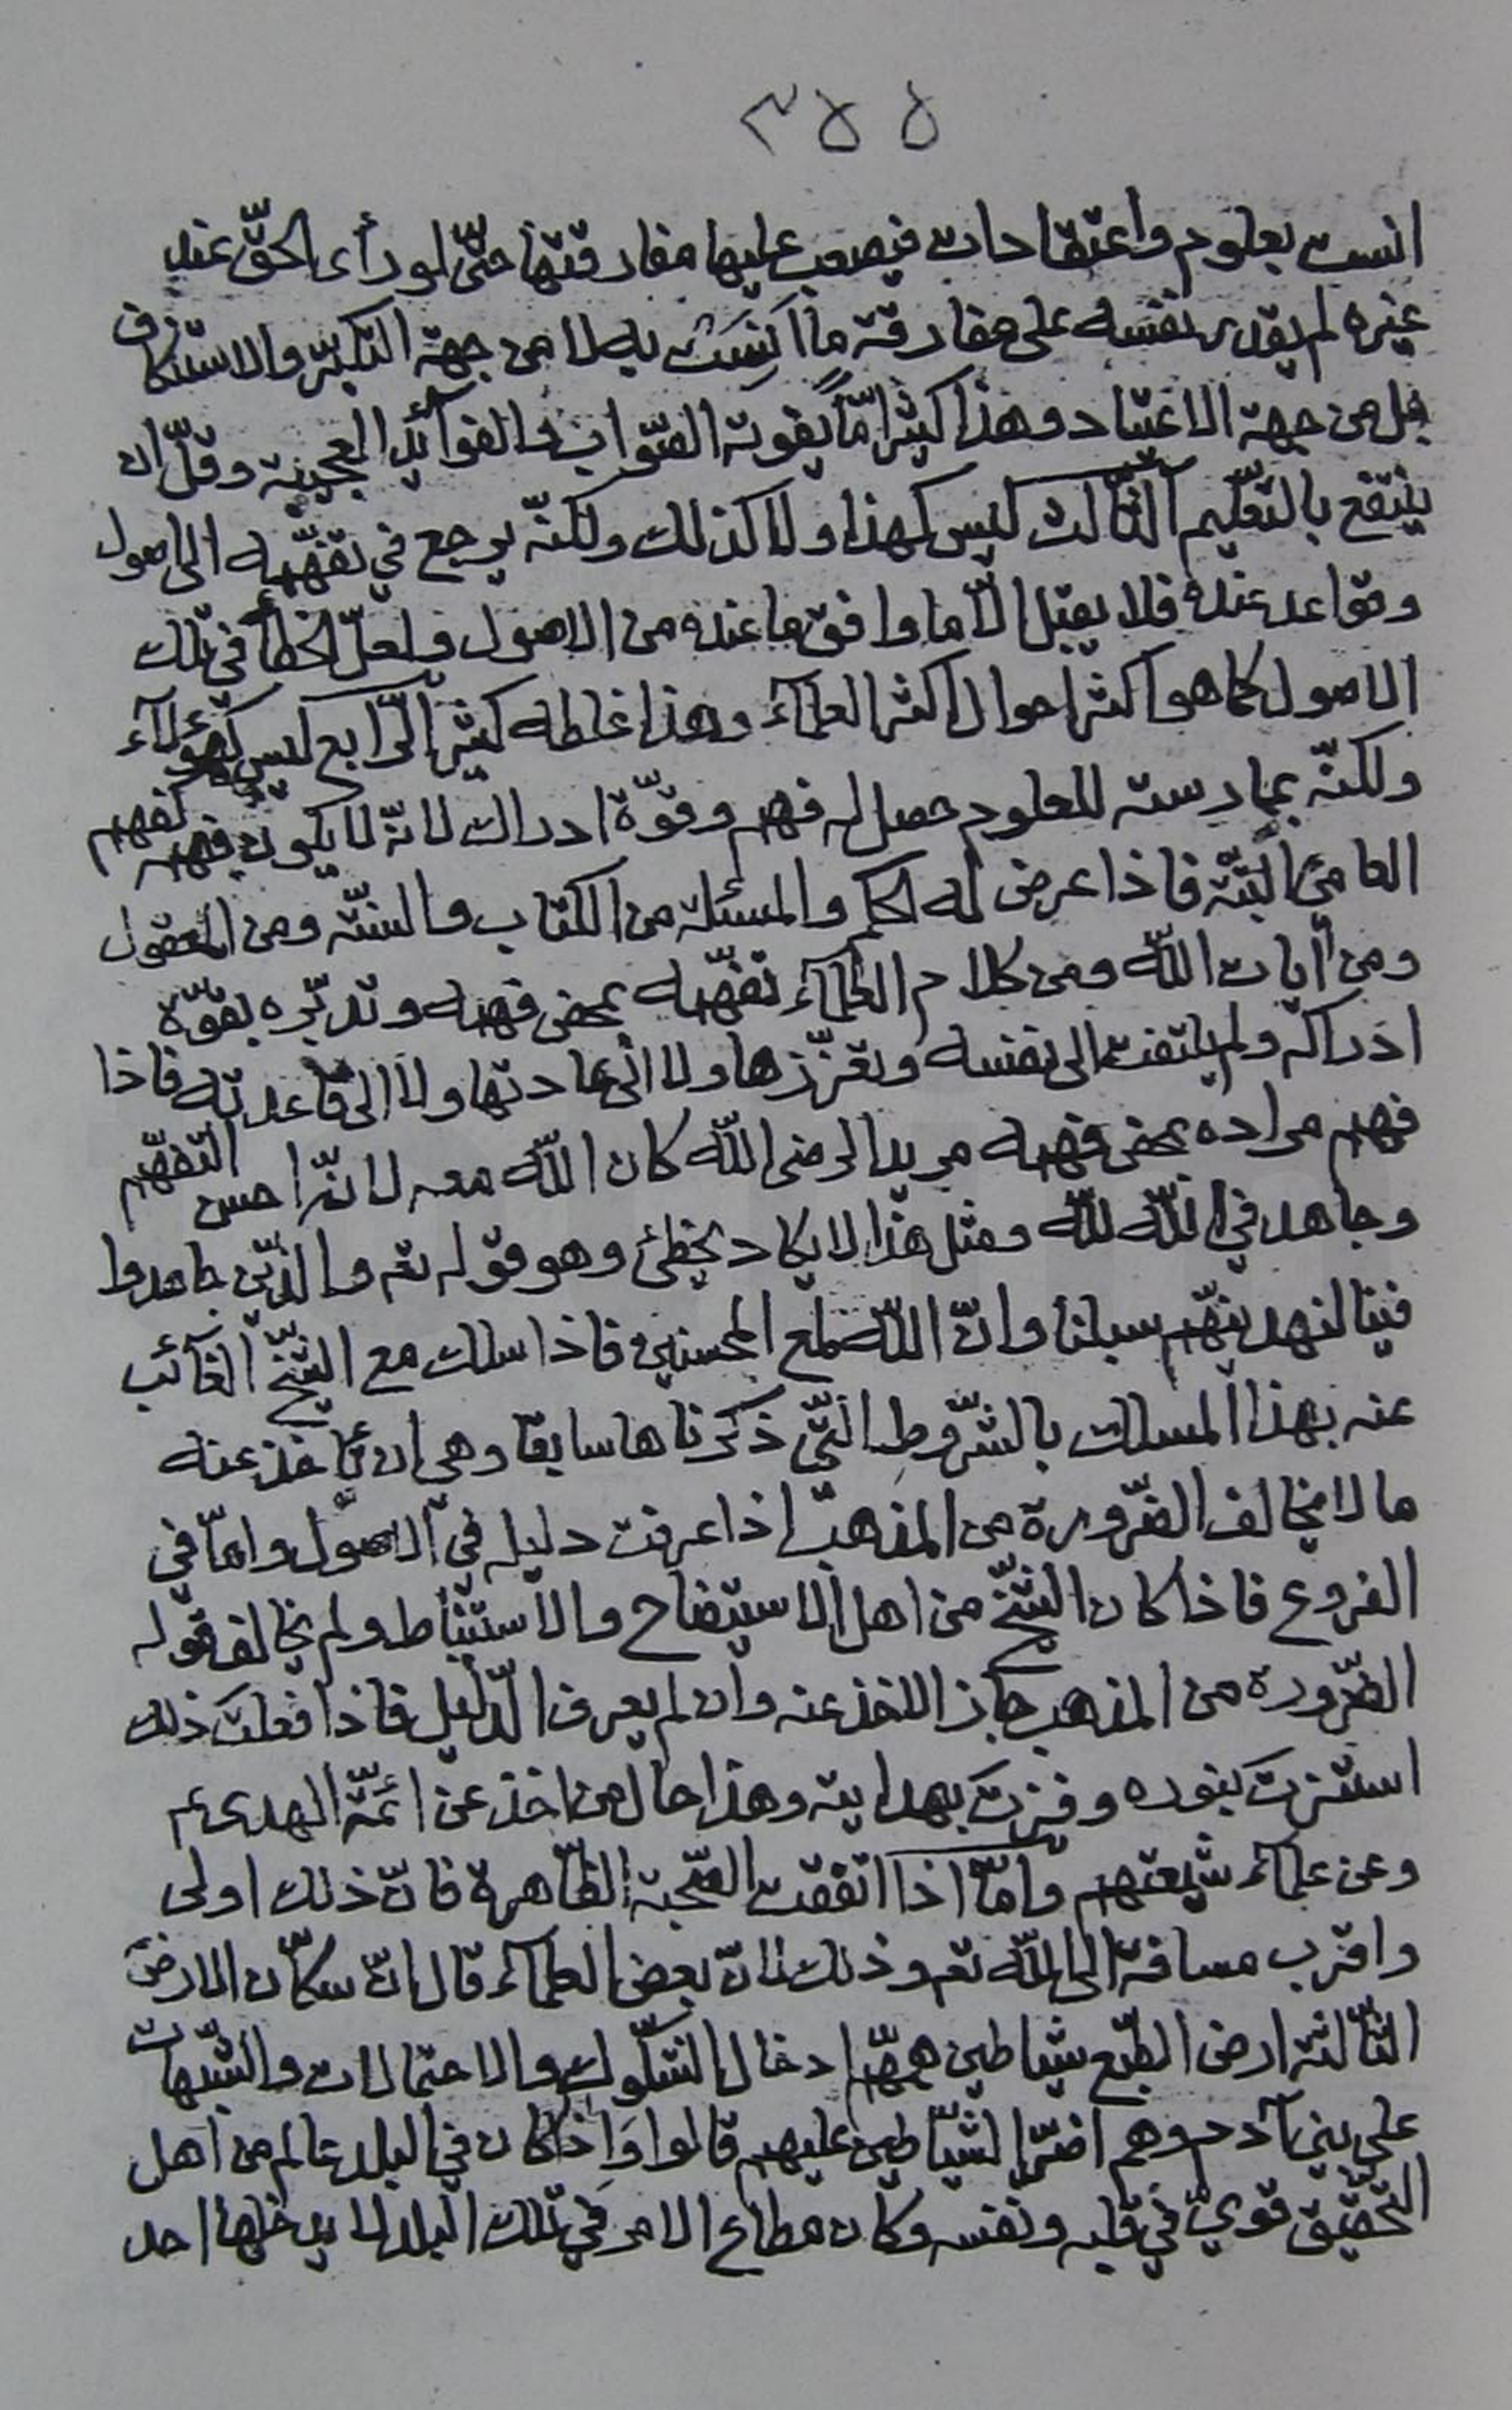 ٣٥٥
انست بعلوم واعتقادات فيصعب عليها مفارقتها حتّى لو رأى الحقّ عند
غيره لم يقدر نفسه على مفارقة ما اَنِسَتْ به لا من جهة التكبّر والاستنكاف
بل من جهة الاعتياد وهذا كثيراً مّا يفوته الصّواب والفوآئد العجيبة وقلّ ان
ينتفع بالتعليم الثّالث ليس كهذا ولا كذلك ولكنّه يرجع في تفهّمه الى اصول
وقواعد عنده فلا يقبل الّا ما وافق ما عنده من الاصول ولعلّ الخطأ في تلك
الاصول كما هو اكثر احوال اكثر العلمآء وهذا غلطه كثير الرّابع ليس كهؤلآء
ولكنّه بممارسته للعلوم حصل له فهم وقوّة ادراك لانّه لا يكون فهمه كفهم
العامي البتّة فاذا عرض له الحكم والمسئلة من الكتاب والسنّة ومن المعقول
ومن آيات اللّه ومن كلام العلمآء تفهّمه بمحض فهمه وتدبّره بقوّة
ادراكه ولم يلتفت الى نفسه وتعزّزها ولا الى عادتها ولا الى قاعدته فاذا
فهم مراده بمحض فهمه مريدا لرضى اللّه كان اللّه معه لانّه احسن التفهّم
وجاهد في اللّه للّه ومثل هذا لا يكاد يخطئ وهو قوله تع والّذين جاهدوا
فينا لنهدينّهم سبلنا وانّ اللّه لمع المحسنين فاذا سلك مع الشّيخ الغآئب
عنه بهذا المسلك بالشّروط الّتي ذكرناها سابقا وهي ان يأخذ عنه
ما لا يخالف الضّرورة من المذهب اذا عرفت دليله في الاصول وامّا في
الفروع فاذا كان الشّيخ من اهل الاستيضاح والاستنباط ولم يخالف قوله
الضّرورة من المذهب جاز الاخذ عنه وان لم يعرف الدّليل فاذا فعلت ذلك
استنرت بنوره وفزت بهدايته وهذا حال من اخذ عن ائمّة الهدى عم
وعن علمآء شيعتهم وامّا اذا اتفقت الصّحبة الظّاهرة فانّ ذلك اولى
واقرب مسافة الى اللّه تع وذلك لانّ بعض العلمآء قال انّ سكّان الارض
الثّالثة ارض الطّبع شياطين همّهم ادخال الشّكوك والاحتمالات والشّبهات
على بني آدم وهم اضرّ الشّياطين عليهم قالوا وَاِذا كان في البلد عالم من اهل
التّحقيق قويّ في قلبه ونفسه وكان مطاع الامر في تلك البلد لا يدخلها احد